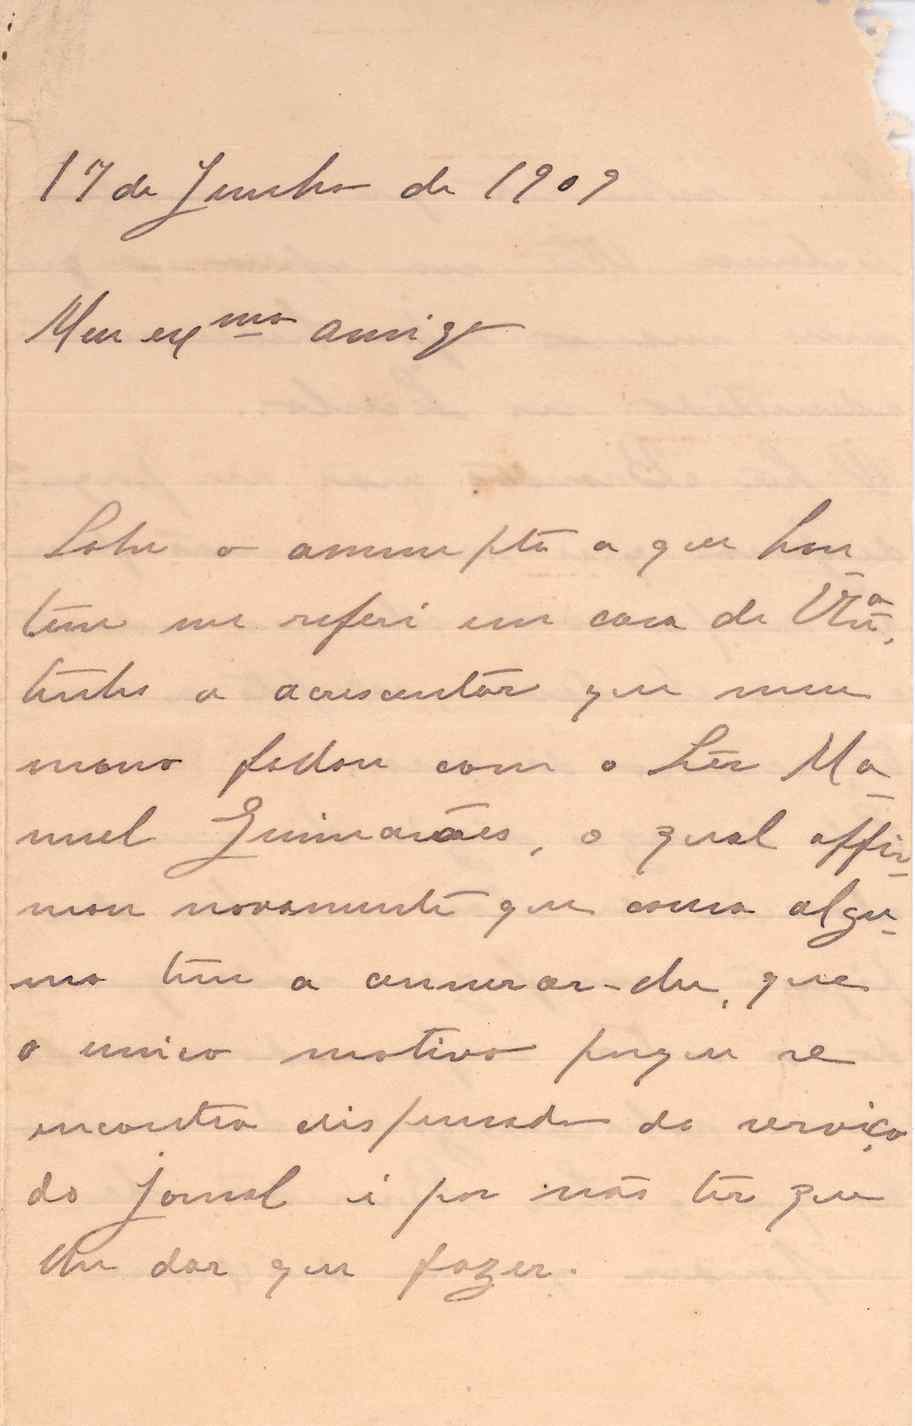 17 de Junho de 1909
Meu exmo amigo
Sobre o assumpto a que hon
tem me referi em casa de V. Exa,
tenho a acrescentar que meu
mano fallou com o Snr Ma-
nuel Guimarães, o qual affir-
mou novamente que cousa algu-
ma tem a censurar-lhe, que
o unico motivo porque se
encontra dispensado do serviço
do jornal é por não ter que
lhe dar que fazer.